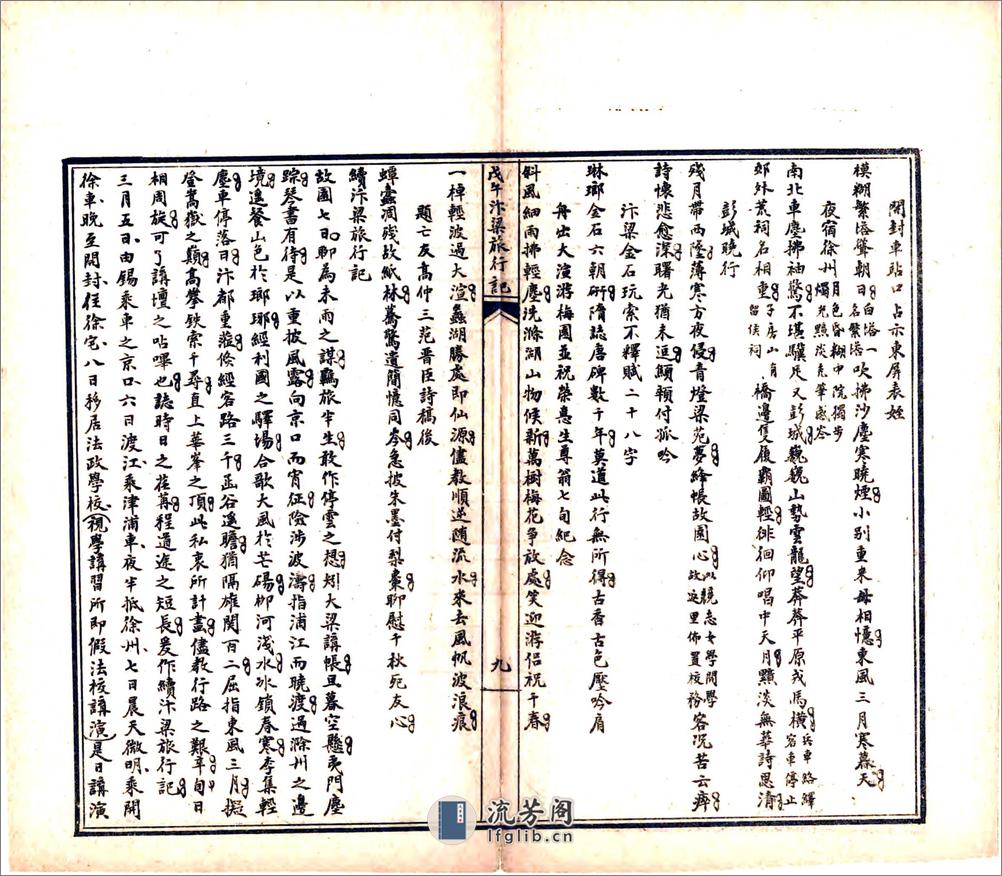 開封車站口占示東屏表姪
模糊繁塔聳朝日白塔一名繁塔吹拂沙塵寒曉煙小別重来毋相憶東風三月寒暮天
夜宿徐州月色昏糊中院獨步燭光黯淡春筆感吟
南北車塵拂袖驚不堪驥足又彭城巍巍山勢雲龍望莽莽平原戎馬橫兵車路繹客車停止
郊外荒祠名相重子房山有留侯祠橋邊隻履霸圖輕徘徊仰唱中天月黯淡無華詩思清
彭城曉行
殘月帶西隆薄寒方夜侵青燈梁苑夢絳帳故園心以競志女學開學故返里佈置校務客況苦云瘁
詩懷悲愈深曙光猶未逗顧領付孤吟
汴梁金石玩索不釋賦二十八字
琳瑯金石六朝研隋誌唐碑數千年莫道此行無所得古香古色壓吟肩
舟出大演游梅園並祝榮息生尊翁七旬紀念
斜風細雨拂輕塵洗滌湖山物候新萬樹梅花爭放處笑迎游侶祝千春
戊午汴梁旅行記
九
一棹輕波過大渲蠡湖勝處即仙源儘教順逆随流水来去風帆波浪痕
題亡友高仲三范晋臣詩稿後
蟬蠹凋残故紙林驀驚遺簡憶同岑急披朱墨付梨棗聊慰千秋死友心
續汴梁旅行記
故國七日即為未雨之謀羈旅半生敢作停雲之想矧大梁講帳旦暮空懸夷門塵
踪琴書有待是以重披風露向京口而宵征險涉波濤指浦江而曉渡過滁州之邊
境遥餐山色於瑯琊經利國之驛場合歌大風於芒碭柳河浅水冰鎖春寒李集輕
塵車停落日汴都重蒞倏經客路三千函谷遥瞻猶隔雄関百二屈指東風三月擬
登嵩嶽之巔高攀鉄索千尋直上華峯之頂此私衷所計畫儘教行路之艱辛旬日
相周旋可了講壇之呫嗶也誌時日之荏苒程道途之短長爰作續汴梁旅行記
三月五日由錫乘車之京口六日渡江乘津浦車夜半抵徐州七日晨天微明乘開
徐車晚至開封住徐宅八日移居法政學校視學講習所即假法校講演是日講演
流芳阁
lfglib.cn